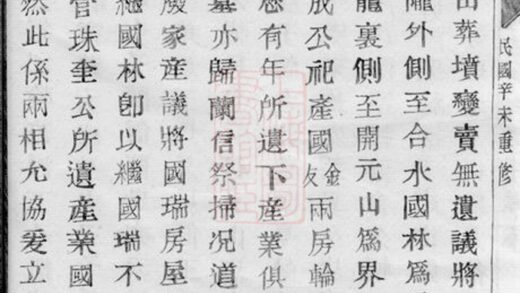 民國辛未重修
出葬墳變賣無遺議將
隴外側至合水國林爲
龍裏側至開元山爲界
成公祀產國金友兩房輪
忽有年所遺下產業俱
墓亦歸蘭信祭掃况道
廢家產議將國瑞房屋
繼國林卽以繼國瑞不
管珠奎公所遺產業國
然此係兩相允協爰立